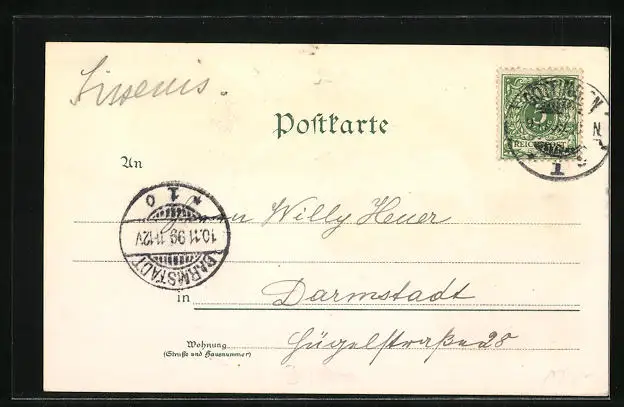 Postkarte
GÖTTINGEN
5
REICHSPOST
1
An
Herrn Willy Heuer
* 1 o
10.11.99 11-12V
DARMSTADT
in
Darmstadt
Wohnung
(Straße und Hausnummer)
Hügelstraße 28